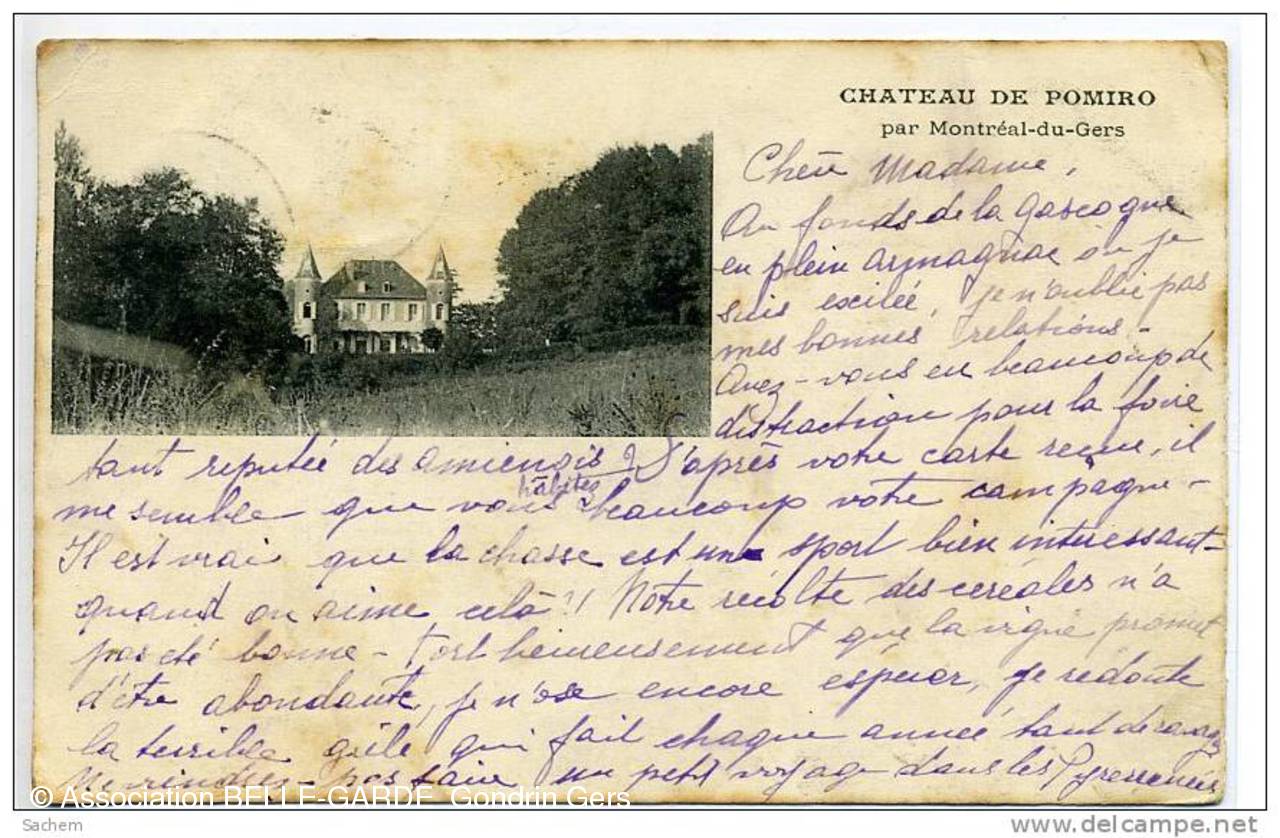 CHATEAU DE POMIRO
par Montréal-du-Gers
Chère Madame,
Au fonds de la Gascogne
en plein armagnac où je
suis exilée, je n'oublie pas
mes bonnes relations -
Avez-vous eu beaucoup de
distraction pour la foire
tant reputée des amienois ? D'après votre carte reçue, il
habitez
me semble que vous beaucoup votre campagne -
Il est vrai que la chasse est un sport bien interessant -
quand on aime celà !! Notre récolte des céréales n'a
pas été bonne - fort heureusement que la vigne promet
d'être abondante, je n'ose encore espérer, je redoute
la terrible grêle qui fait chaque année tant de ravages
pas faire un petit voyage dans les Pyrennées
© Association BELLE-GARDE Gondrin Gers
Sachem
delcampe.net